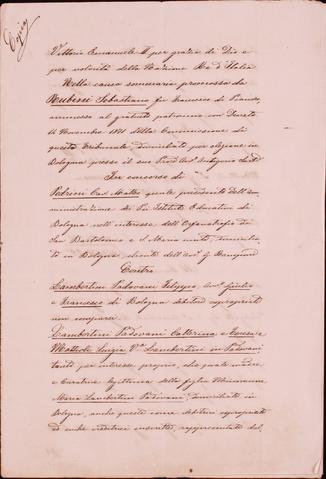 Copia
Vittorio Emanuele II per grazia di Dio e
per volontà della Nazione Re d'Italia
Nella causa sommaria promossa da
Rubini Sebastiano fu Francesco di
ammesso al gratuito patrocinio con Decreto
11 Novembre 1871 della Commissione di
questo Tribunale, domiciliato per elezione in
Bologna presso il suo
In concorso di
Pedrini Cav. Matteo quale presidente dell'Am
ministrazione dei Pii Istituti Educativi di
Bologna nell'interesse dell'Orfanotrofio di
San Bartolomeo e S. Maria uniti, domicilia
to in Bologna, cliente dell'Avv.
Contro
Lambertini Padovani Filippo, Avv. Giulio
e Francesco di Bologna debitori espropriati
non comparsi
Lambertini Padovani Catterina, e Teresa e
Mattioli Luigia Va. Lambertini in Padovani
tanto per interesse proprio, che quale madre
e Curatrice legittima della figlia Minorenne
Maria Lambertini Padovani, domiciliate in
Bologna, anche queste come debitrici espropriate
ed anche creditrici inscritte, rappresentate dal